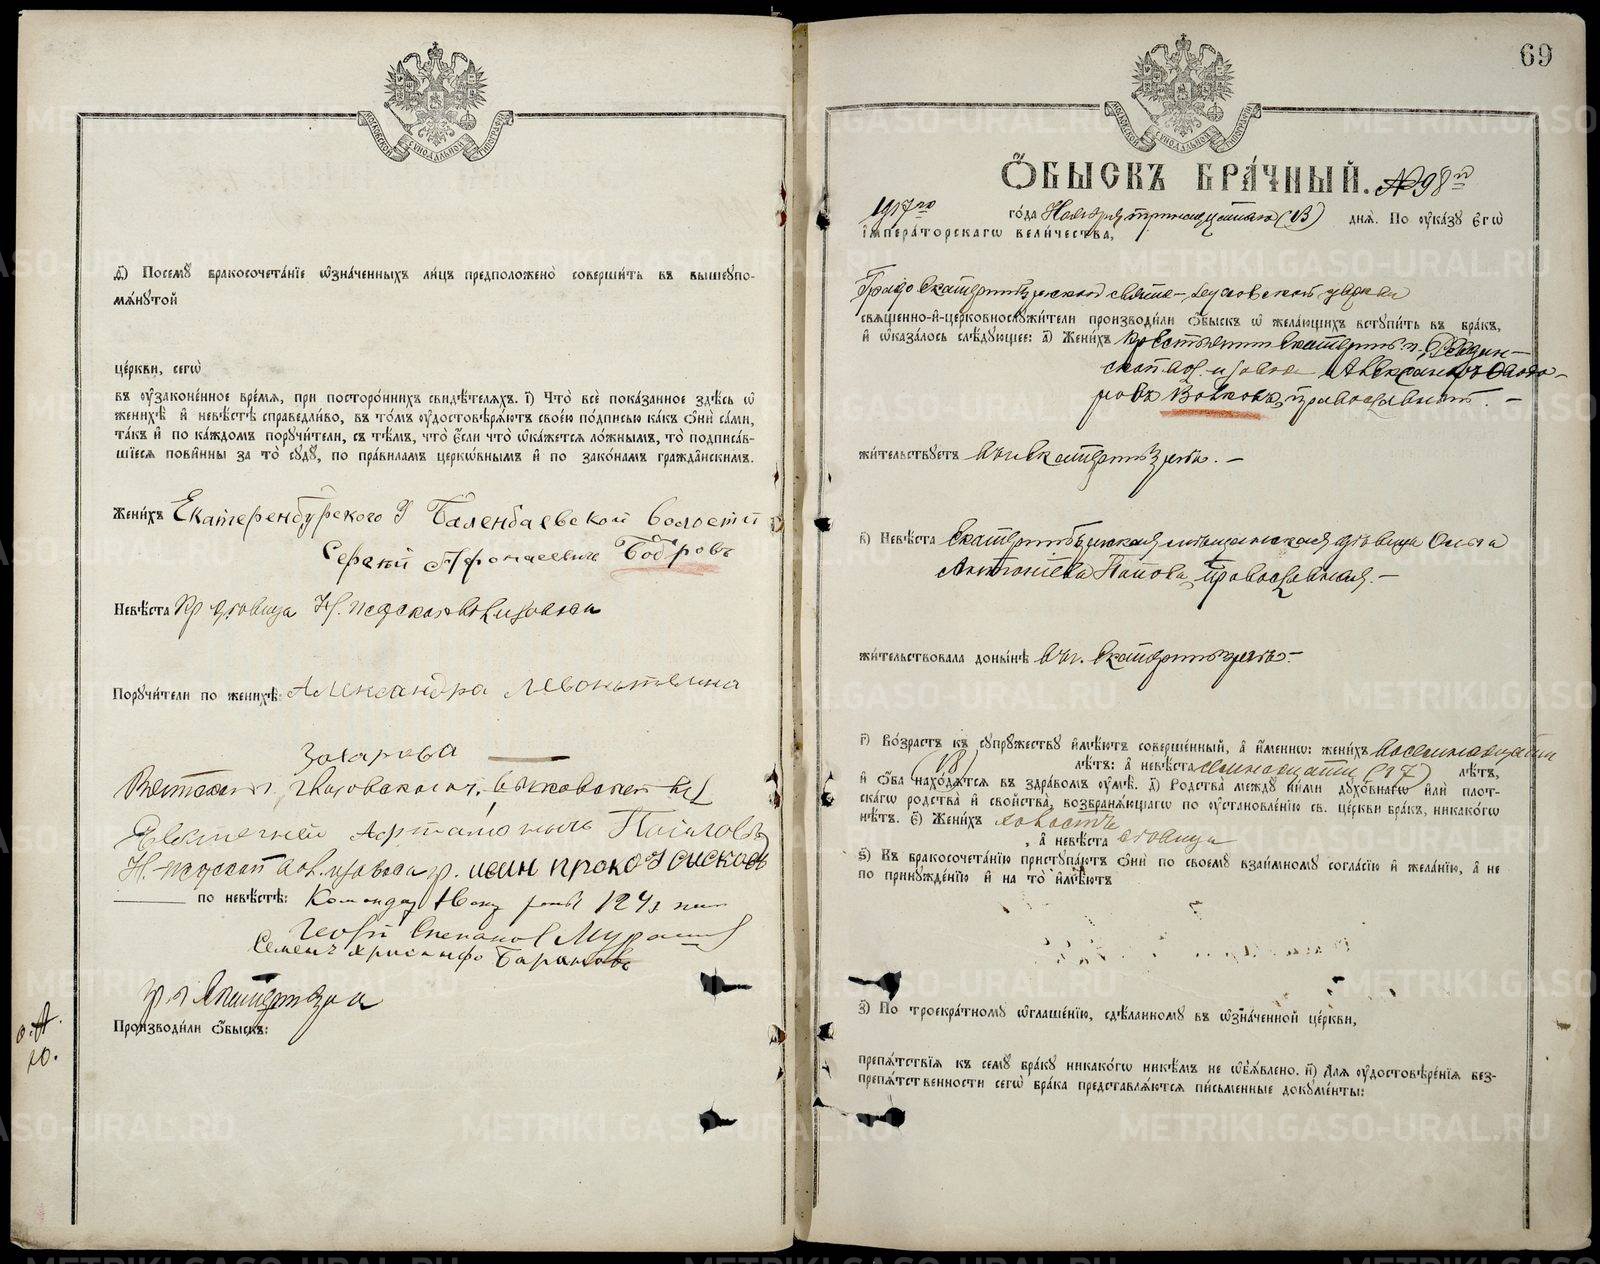 МОСКОВСКОЙ СУНОДАЛЬНОЙ ТИПОГРАФІИ
д҃) Посемꙋ̀ бракосочета́нїе ѡ҆зна́ченныхъ ли́цъ предположено̀ соверши́ть въ вышеꙋпо-
мѧ́нꙋтой
це́ркви, сегѡ̀
въ ᲂу҆зако́ненное вре́мѧ, при посторо́ннихъ свидѣ́телѧхъ. і҃) Что̀ всѐ пока́занное здѣ́сь ѡ҆
женихѣ̀ и҆ невѣ́стѣ справедли́во, въ то́мъ ᲂу҆достовѣрѧ́ютъ свое́ю по́дписью ка́къ ѻ҆нѝ са́ми,
та́къ и҆ по ка́ждомъ порꙋчи́тели, съ тѣ́мъ, что̀ є҆́сли что̀ ѡ҆ка́жетсѧ ло́жнымъ, то̀ подписа́в-
шїесѧ пови́нны за то̀ сꙋдꙋ̀, по пра́виламъ церкѡ́внымъ и҆ по зако́намъ гражда́нскимъ.
Жени́хъ Екатеренбурского У Баленбаевской волости
Сергѣй Афонасевичъ Бобровъ
Невѣ́ста Кр дѣвица Н.
Порꙋчи́тели по женихѣ̀: Александра Левонтьевича
Захарова
Вятской г.
Евгений Артамонычъ
Н. гр. иван прокоѳ
по невѣ́стѣ: Командѣ роты 124
Георгій Степанов Мурашев
Семенъ Хрисанфо Баранов
гр. г. Екатеринбурга
Произво́дили ѻ҆́быскъ:
69
МОСКОВСКОЙ СУНОДАЛЬНОЙ ТИПОГРАФІИ
Ѻ҆́БЫСКЪ БРА́ЧНЫЙ. №98й
1917го го́да Ноября тринадцатаго (13) днѧ̀. По ᲂу҆ка́зꙋ Є҆гѡ̀
і҆мпера́торскагѡ вели́чества,
Градо Екатеринбургской свято-Духовской церкви
свѧще́нно-и҆-церковнослꙋжи́тели производи́ли ѻ҆́быскъ ѡ҆ жела́ющихъ встꙋпи́ть въ бра́къ,
и҆ ѡ҆каза́лось слѣ́дꙋющее: а҃) Жени́хъ Крестьянин Екатеринб. у. Ревдин-
ской вол. и завода Александръ Ѳеодо-
ровъ Волковъ, православный. –
жи́тельствꙋетъ въ г. Екатеринбургѣ. –
в҃) Невѣ́ста Екатеринбургская мѣщанская дѣвица Ольга
Антоніева Попова, православная. –
жи́тельствовала доны́нѣ въ г. Екатеринбургѣ. –
г҃) Во́зрастъ къ сꙋпрꙋ́жествꙋ и҆мѣ́ютъ соверше́нный, а҆ и҆́менно: жени́хъ восемнадцати
(18) лѣ́тъ: а҆ невѣ́ста семнадцати (17) лѣ́тъ,
и҆ ѻ҆́ба нахо́дѧтсѧ въ здра́вомъ ᲂу҆мѣ̀. д҃) Родства̀ междꙋ̀ ни́ми дꙋхо́внагѡ и҆лѝ пло́т-
скагѡ родства̀ и҆ сво́йства, возбранѧ́ющагѡ по ᲂу҆становле́нїю св. це́ркви бра́къ, никако́гѡ
нѣ́тъ. є҃) Жени́хъ холостъ
, а҆ невѣ́ста дѣвица
ѕ҃) Къ бракосочета́нїю пристꙋпа́ютъ ѻ҆нѝ по своемꙋ̀ взаи́мномꙋ согла́сїю и҆ жела́нїю, а҆ не
по принꙋжде́нїю и҆ на то̀ и҆мѣ́ютъ
з҃) По троекра́тномꙋ ѡ҆глаше́нїю, сдѣ́ланномꙋ въ ѡ҆зна́ченной це́ркви,
препѧ́тствїѧ къ семꙋ̀ бра́кꙋ никако́гѡ никѣ́мъ не ѡ҆б̾ѧ́влено. и҃) Для ᲂу҆достовѣре́нїѧ без-
препѧ́тственности сегѡ̀ бра́ка представлѧ́ютсѧ пи́сьменные докꙋме́нты:
METRIKI.GASO-URAL.RU